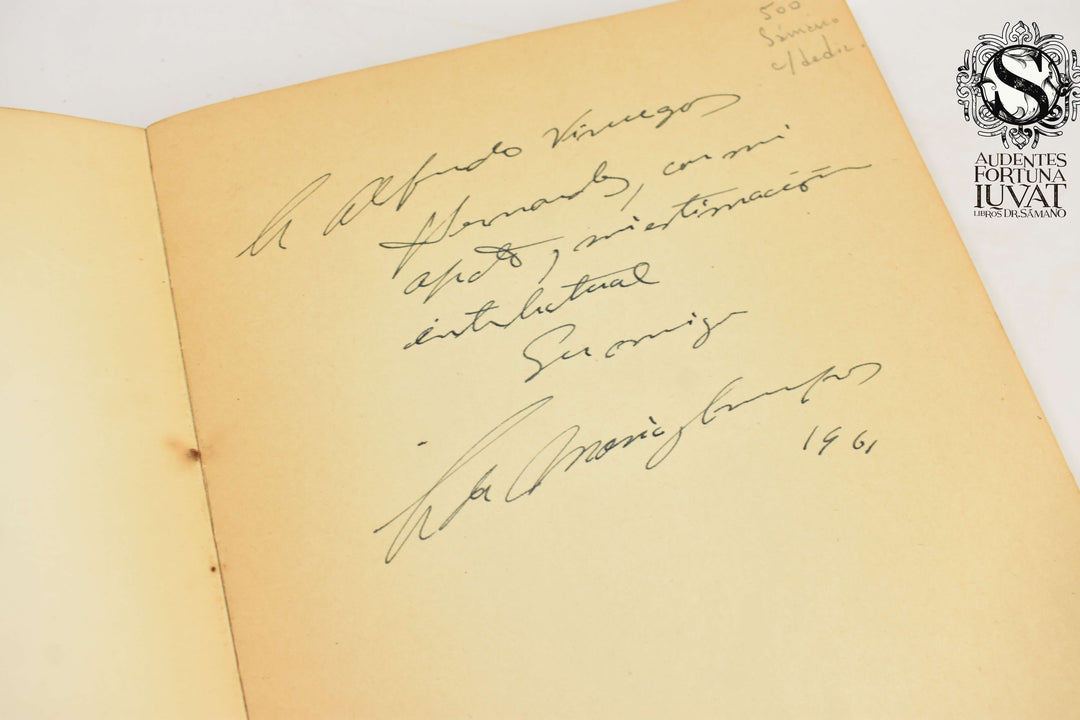 500
Sámano
c/dedic.
A Alfredo Viruegas
Hernández, con mi
afecto y mi estimación
intelectual
Su amiga
María
1961
AUDENTES
FORTUNA
IUVAT
LIBROS DR. SÁMANO